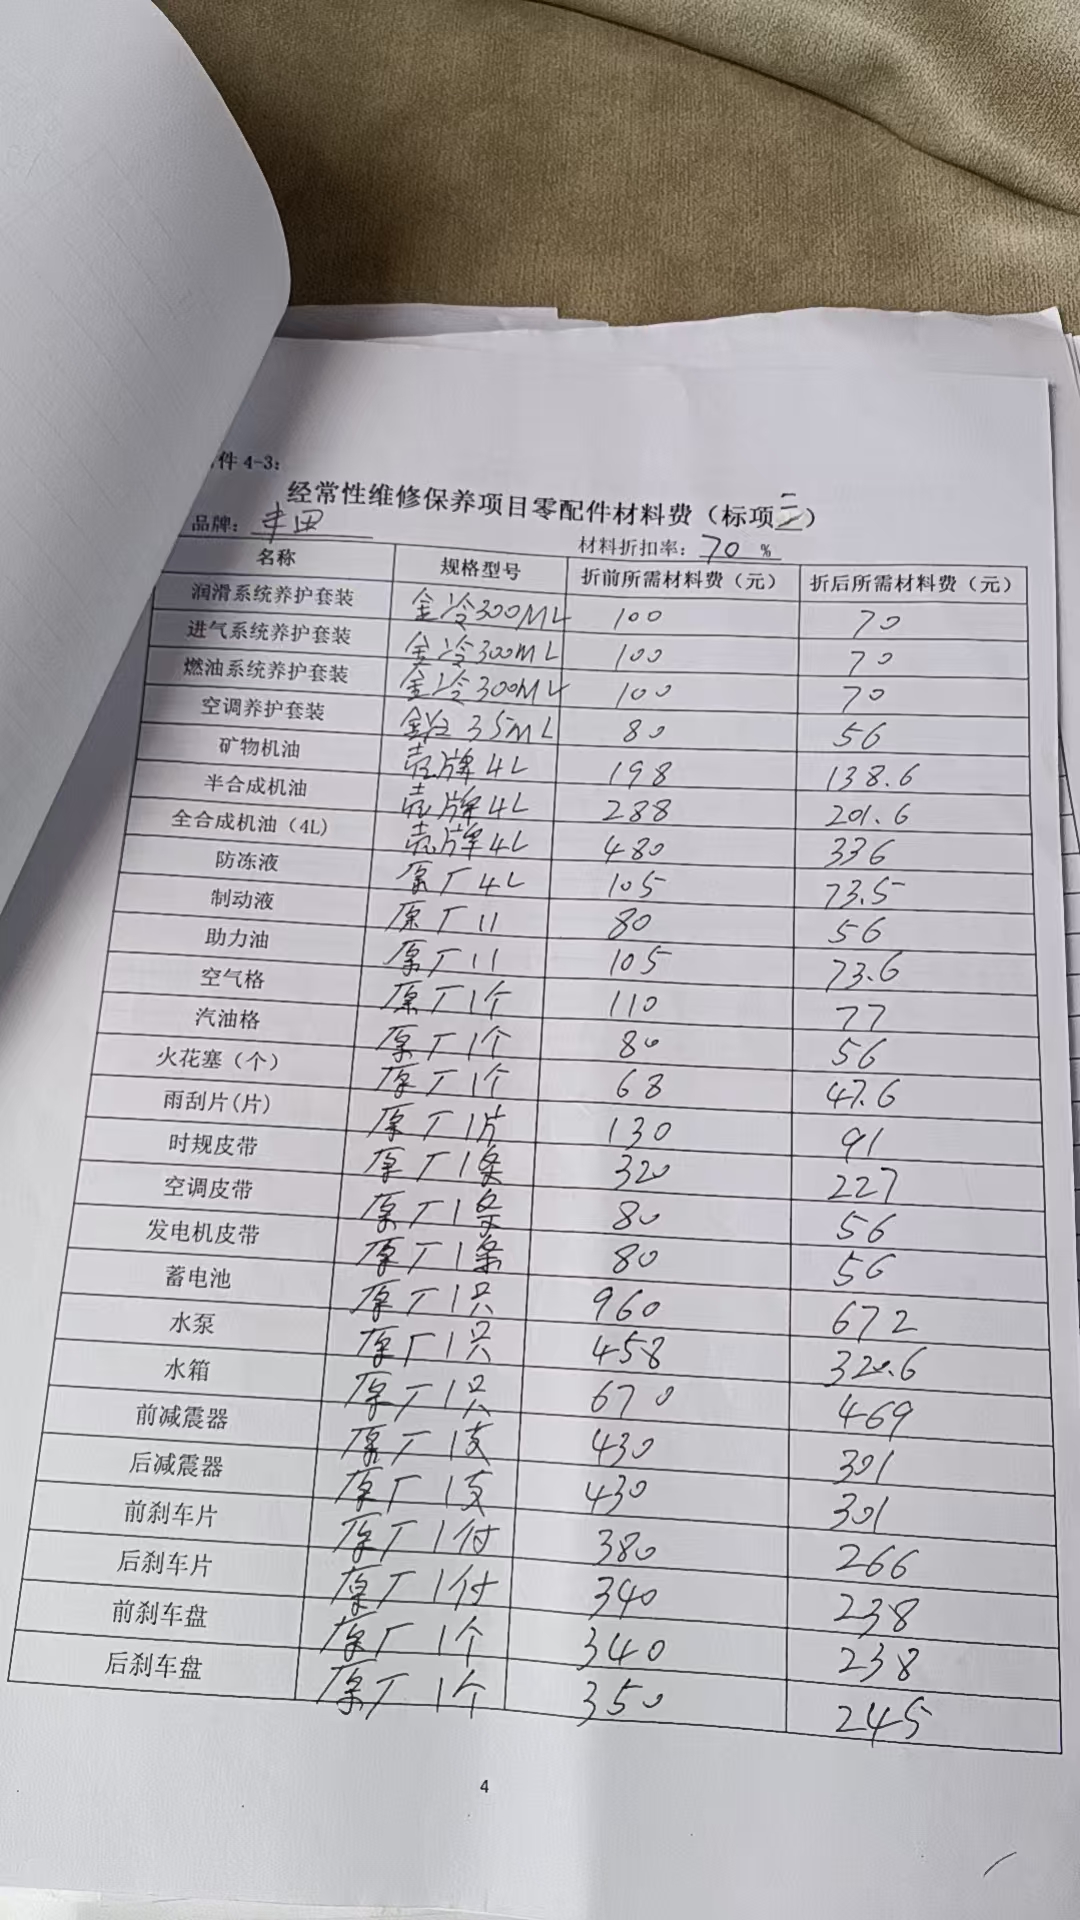 件4-3：
经常性维修保养项目零配件材料费（标项二）
品牌：丰田 材料折扣率：70 %
名称 规格型号 折前所需材料费（元） 折后所需材料费（元）
润滑系统养护套装 金冷300ML 100 70
进气系统养护套装 金冷300ML 100 70
燃油系统养护套装 金冷300ML 100 70
空调养护套装 35ML 80 56
矿物机油 壳牌4L 198 138.6
半合成机油 壳牌4L 288 201.6
全合成机油（4L） 壳牌4L 480 336
防冻液 原厂4L 105 73.5
制动液 原厂1l 80 56
助力油 原厂1l 105 73.6
空气格 原厂1个 110 77
汽油格 原厂1个 80 56
火花塞（个） 原厂1个 68 47.6
雨刮片(片) 原厂1片 130 91
时规皮带 原厂1条 320 227
空调皮带 原厂1条 80 56
发电机皮带 原厂1条 80 56
蓄电池 原厂1只 960 672
水泵 原厂1只 458 320.6
水箱 原厂1只 670 469
前减震器 原厂1支 430 301
后减震器 原厂1支 430 301
前刹车片 原厂1付 380 266
后刹车片 原厂1付 340 238
前刹车盘 原厂1个 340 238
后刹车盘 原厂1个 350 245
4